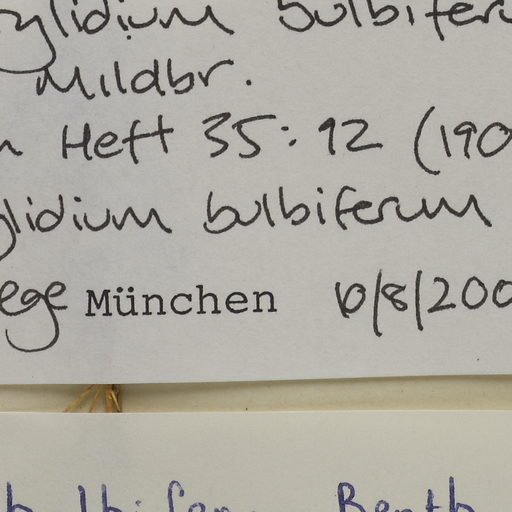 ylidium bulbifer
Mildbr.
n Heft 35: 92 (190
lidium bulbiferum
ege München 10/8/200
bulbiferum Benth